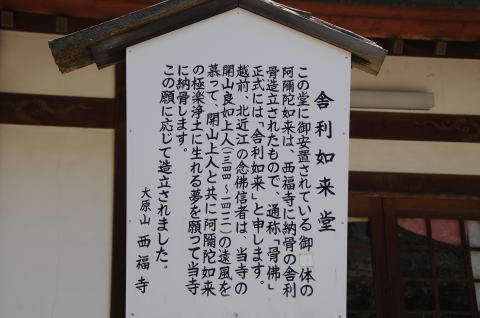 舎利如来堂
この堂に御安置されている御 体の
阿彌陀如来は、西福寺に納骨の舎利
骨造立されたもので、通称「骨佛」
正式には「舎利如来」と申します。
越前、北近江の念佛信者は、当寺の
開山良如上人(三四四～四三二)の遠風を
慕って、開山上人と共に阿彌陀如来
の極楽浄土に生れる夢を願って当寺
に納骨します。
この願に応じて造立されました。
大原山 西福寺